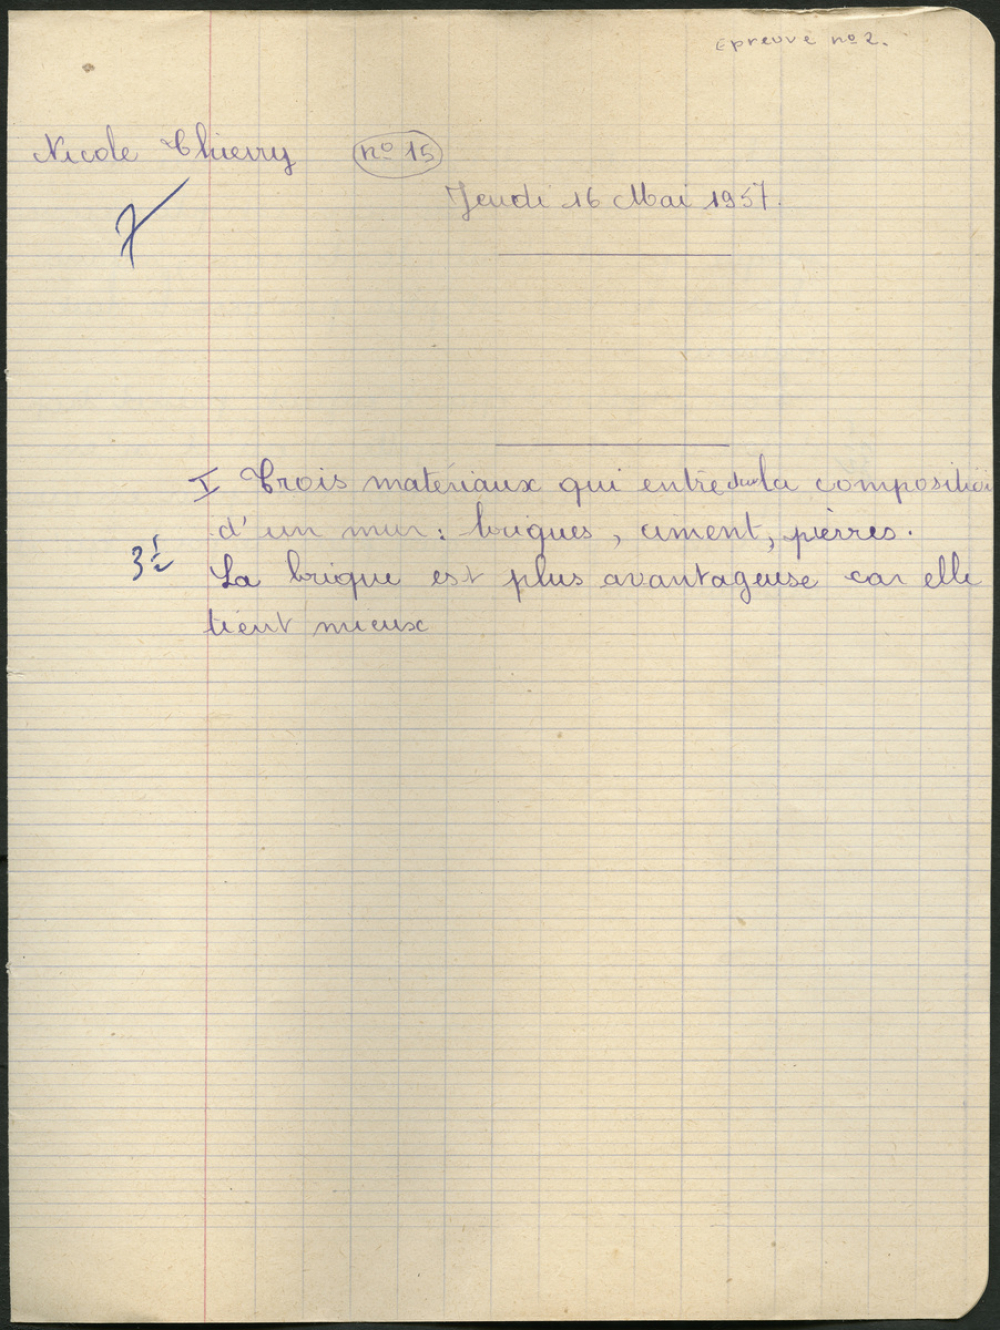 Epreuve nº 2.
Nicole Thierry nº 15
Jeudi 16 Mai 1957.
7
I Trois matériaux qui entre dans la composition
d'un mur : briques, ciment, pierres.
3 1/2
La brique est plus avantageuse car elle
tient mieux